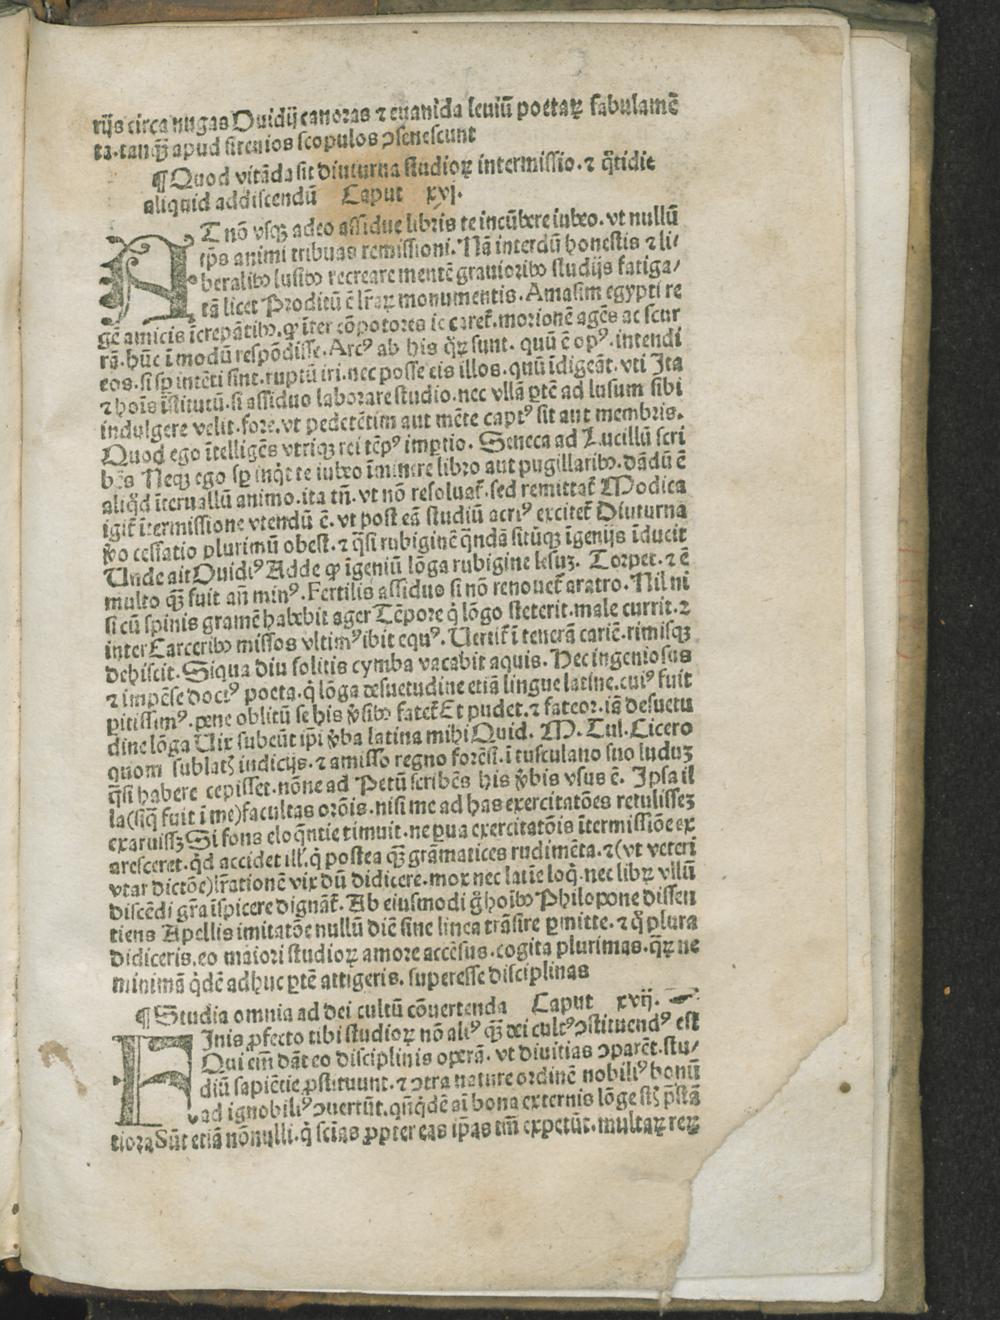 rijs circa nugas Ouidij canoras ⁊ euanida leuiū poetaꝝ fabulamē
ta.tanq̄ȝ apud sirenios scopulos ꝯsenescunt
¶ Quod vitāda sit diuturna studioꝝ intermissio.⁊ q̄tidie
aliquid addiscendū Caput xvj.
AT nō vsqȝ adeo assidue libris te incūbere iubeo.vt nullū
ip̄s animi tribuas remissioni.Nā interdū honestis ⁊ li/
beralibꝰ lusibꝰ recreare mentē grauioribꝰ studijs fatiga/
tā licet Proditū ē lr̄aꝝ monumentis.Amasim egypti re
gē amicis īcrepātibꝰ.ꝙ īter cōpotores ioc̄aret̄.morionē agēs ac scur
rā.hūc ī modū respōdisse.Arcꝰ ab his q̊ꝝ sunt.quū ē opꝰ.intendi
eos.si sꝑ intēti sint.ruptū iri.nec posse eis illos.quū īdigeāt.vti Ita
⁊ hoīs īstitutū.si assiduo laborare studio.nec vllā ꝑtē ad lusum sibi
indulgere velit.fore.vt pedetētim aut mēte captꝰ sit aut membris.
Quod ego ītelligēs vtriqȝ rei tēpꝰ imꝑtio. Seneca ad Lucillū scri
bēs Neqȝ ego sꝑ inq̇t te iubeo īminere libro aut pugillaribꝰ.dādū ē
aliq̇d īteruallū animo.ita tn̄.vt nō resoluat̄.sed remittat̄ Modica
igit̄ ītermissione vtendū ē.vt post eā studiū acriꝰ excitet̄ Diuturna
v̊o cessatio plurimū obest.⁊ q̄si rubiginē q̄ndā sitūqȝ īgenijs īducit
Unde ait Ouidiꝰ Adde ꝙ īgeniū lōga rubigine lesuȝ. Torpet.⁊ ē
multo q̄ȝ fuit an̄ minꝰ.Fertilis assiduo si nō renouet̄ aratro.Nil ni
si cū spinis gramē habebit ager Tēpore q̇ lōgo steterit.male currit.⁊
inter Carceribꝰ missos vltimꝰ ibit equꝰ.Uertit̄ ī tenerā cariē.rimisqȝ
dehiscit.Siqua diu solitis cymba vacabit aquis.Hec ingeniosus
⁊ impēse doctꝰ poeta.q̇ lōga desuetudine etiā lingue latine.cuiꝰ fuit
pitissimꝰ.pene oblitū se his v̊sibꝰ fatet̄ Et pudet.⁊ fateor.iā desuetu
dine lōga Uix subeūt ip̄i v̊ba latina mihi Quid. M. Tul.Cicero
quom sublatꝭ iudicijs.⁊ amisso regno forēsi.ī tusculano suo luduȝ
q̄si habere cepisset.nōne ad Petū scribēs his v̊bis vsus ē. Ipsa il
la(siq̄ fuit ī me)facultas orōis.nisi me ad has exercitatōes retulisseȝ
exaruissȝ Si fons eloq̄ntie timuit.ne ꝑua exercitatōis ītermissiōe ex
aresceret.q̇d accidet ill'.q̇ postea q̄ȝ grāmatices rudimēta.⁊(vt veteri
vtar dictōe)lr̄ationē vix dū didicere.mox nec latīe loq̇.nec libꝝ vllū
discēdi gr̄a īspicere dignāt̄.Ab eiusmodi g̊ hoībꝰ Philopone dissen
tiens Apellis imitatōe nullū diē sine linea trāsire ꝑmitte.⁊ q̊ plura
didiceris.eo maiori studioꝝ amore accēsus.cogita plurimas.q̊ꝝ ne
minimā q̇dē adhuc ꝑtē attigeris.superesse disciplinas
¶ Studia omnia ad dei cultū cōuertenda Caput xvij.
FInis ꝓfecto tibi studioꝝ nō aliꝰ q̄ȝ dei cultꝰ ꝯstituendꝰ est
Qui em̄ dāt eo disciplinis oꝑā.vt diuitias ꝯparēt.stu/
diū sapiētie ꝓstituunt.⁊ ꝯtra nature ordinē nobiliꝰ bonū
ad ignobiliꝰ ꝯuertūt.qn̄q̇dē aī bona externis lōge sūt p̄stā
tiora Sūt etiā nōnulli.q̇ scīas ꝓpter eas ip̄as tm̄ expetūt.multaꝝ reꝝ